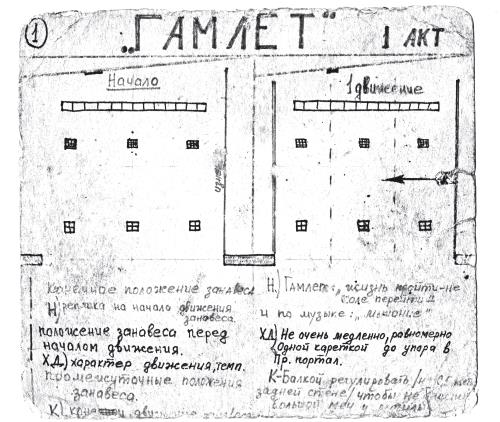 1
„ГАМЛЕТ"
1 АКТ
Начало
1 движение
Конечное положение занавеса
Н) реплика на начало движения
занавеса.
положение зановеса перед
началом движения.
Х.Д.) характер движения, темп.
промежуточные положения
занавеса.
К)
Н.) Гамлет: „жизнь пройти-не
поле перейти"
и по музыке:
Х.Д.) Не очень медленно, равномерно
Одной кареткой до упора в
Пр. портал.
К-Балкой регулировать
задней стене, чтобы не
большой меч и